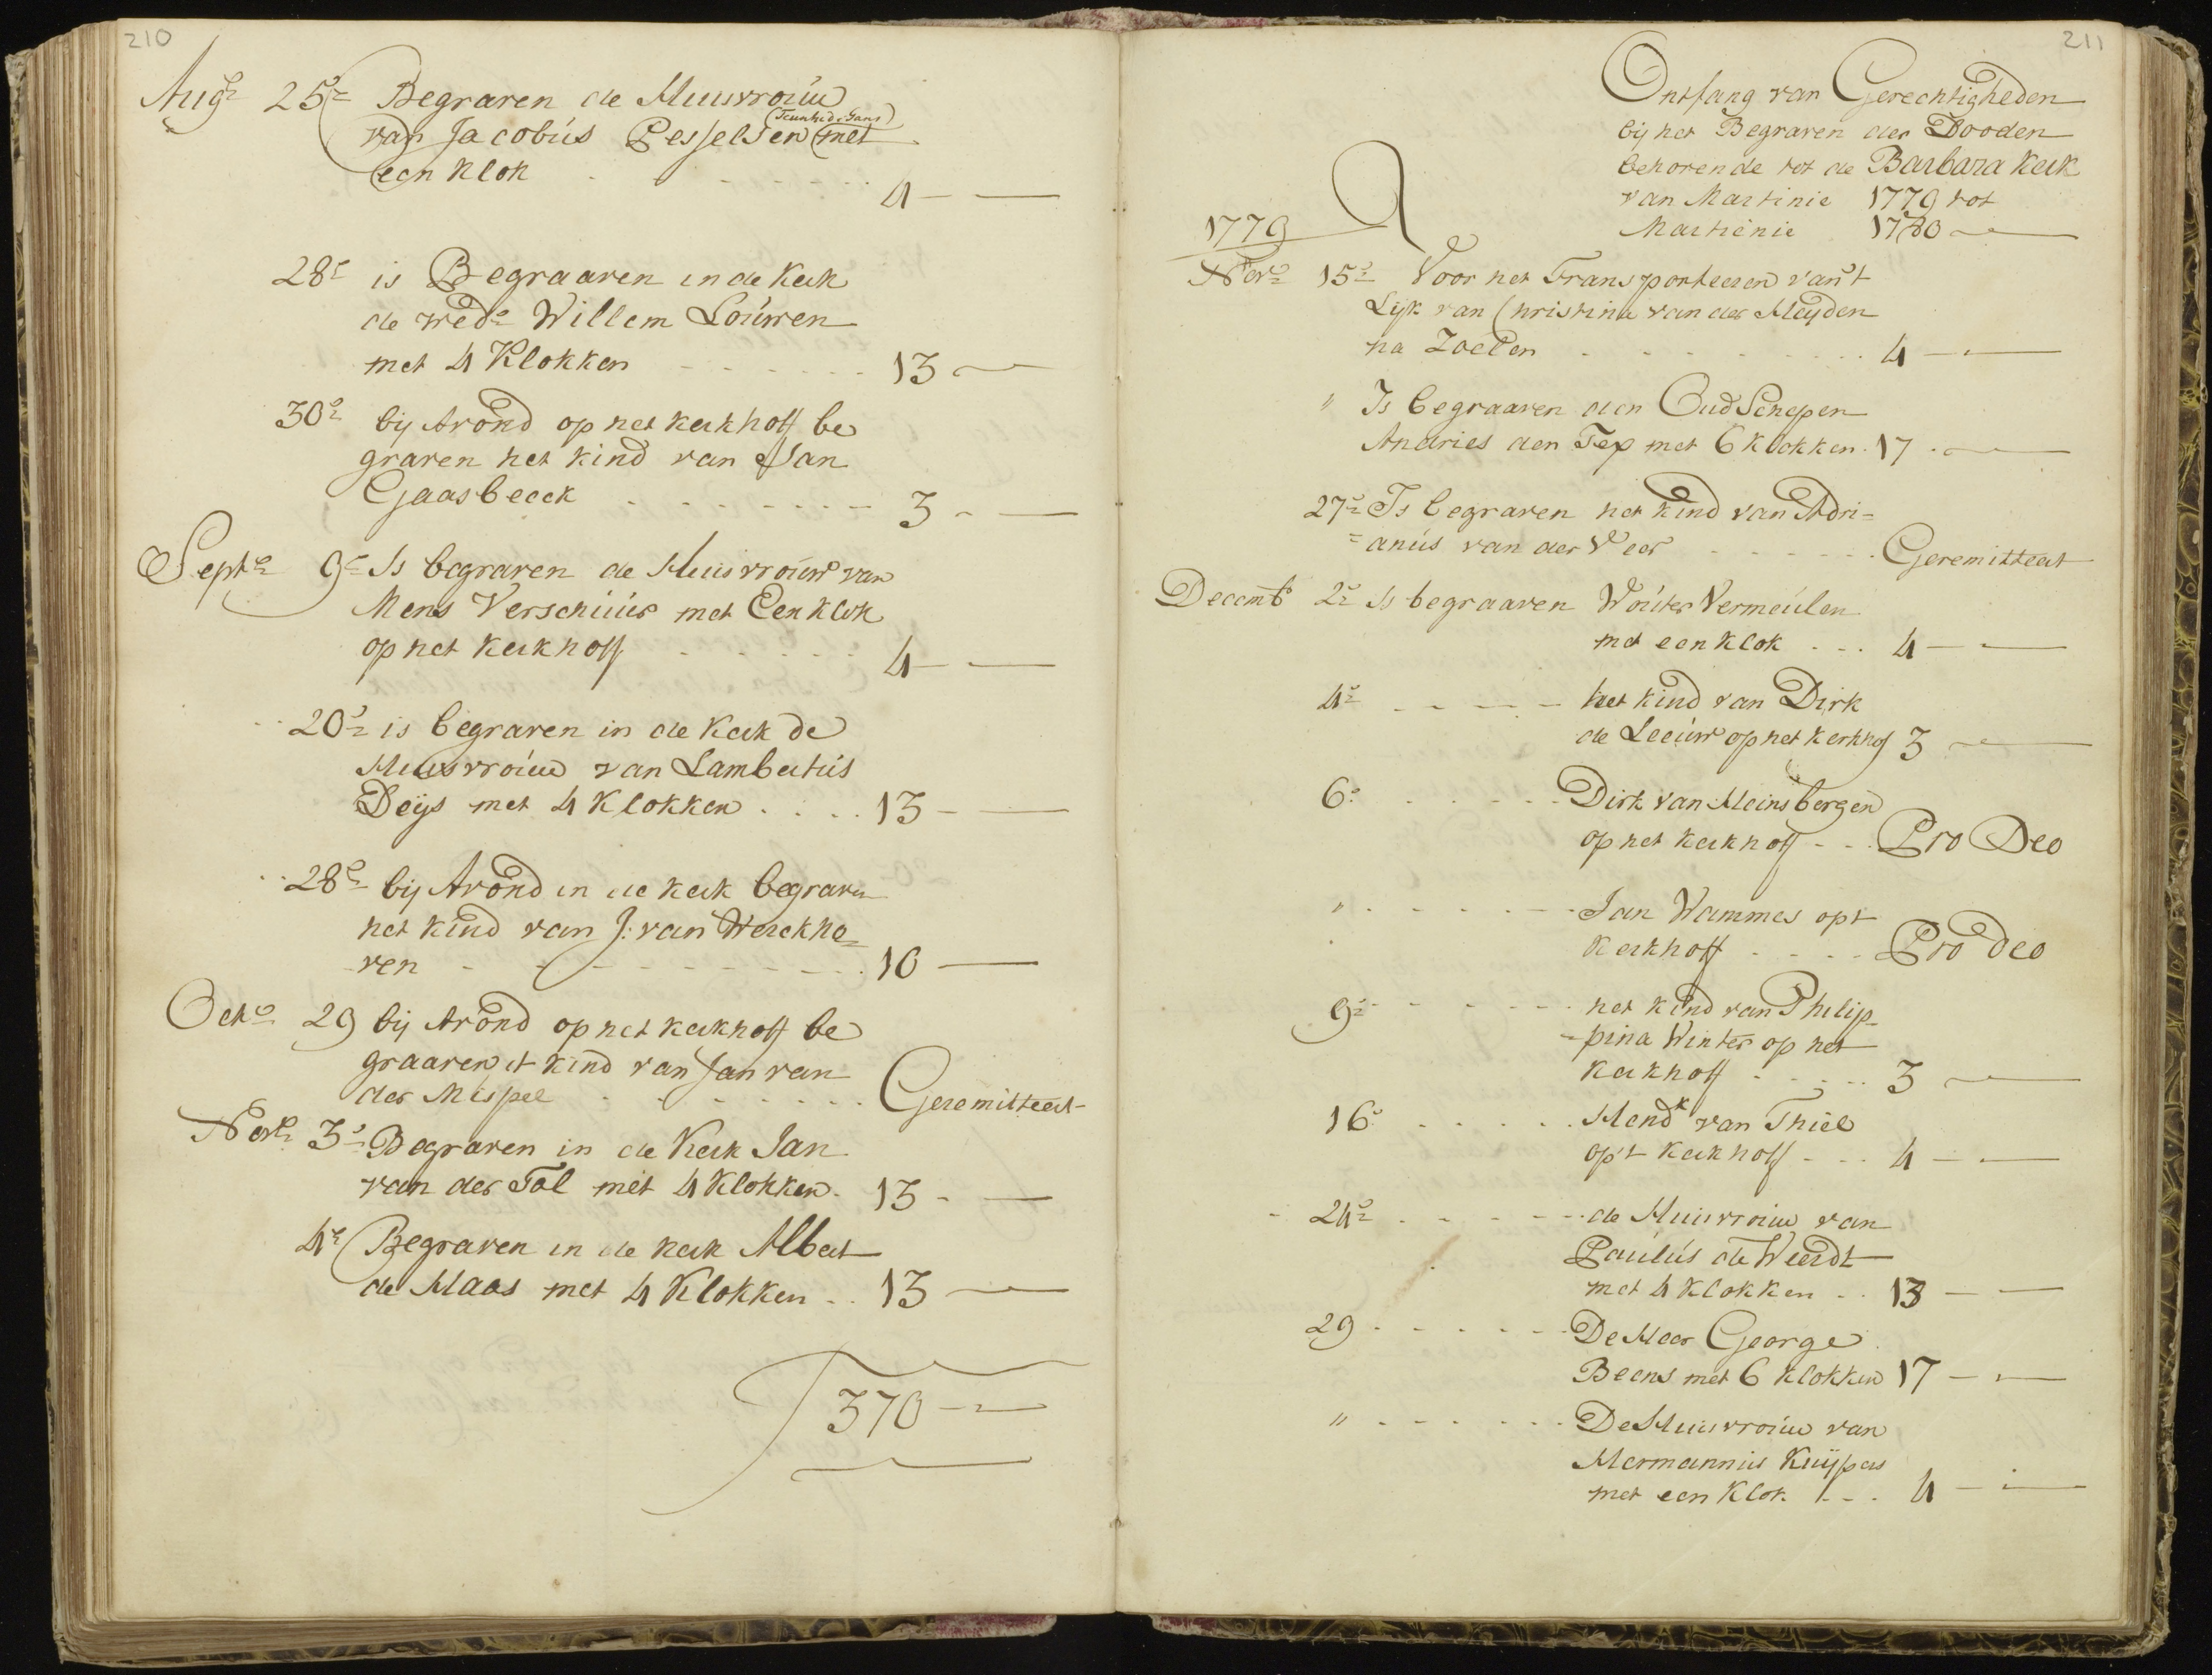 210
Augs 25e Begraven de Huisvrouw
(Teunis de Gans)
van Jacobus Pesselsen met
een klok - - - - - 4 - -
28e is Begraaven in de Kerk
de wede Willem Louwen
met 4 Klokken - - - - - 13 -
30e bij Avond op het kerkhoff be
graven het kind van Jan
Gaasbeeck - - - - - 3 - -
Septr 9e Is begraven de Huisvrouw van
Mens Verschuur met Een klok
op het Kerkhoff - - - - 4 - -
20e is begraven in de Kerk de
Huisvrouw van Lambertus
Deijs met 4 Klokken . . . . 13 - -
28e bij Avond in de kerk begraven
het kind van J: van Werckho=
ven - - - - - - - 10 -
Octr 29 bij Avond op het kerkhoff be
graaven 't kind van Jan van
der Mispel . - - - - - Geremitteert
Novr 3e Begraven in de Kerk Jan
van der Tol met 4 Klokken. 13 - -
4e Begraven in de kerk Albert
de Haas met 4 Klokken . . 13 -
ƒ 370 - -
211
Ontfang van Gerechtigheden
bij het Begraven der Dooden
behorende tot de Barbara Kerk
van Martinie 1779 tot
Martienie 1780 -
1779
Novr 15e Voor het Transporteeren van't
Lijk van Christina van der Heijden
na Zoelen - - - - - 4 - -
" Is begraaven den Oud Schepen
Andries den Tex met 6 klokken. 17 . -
27e Is begraven het kind van Adri=
=anus van der Veer - - - - - Geremitteert
Decemb 2e Is begraaven Wouter Vermeulen
met een klok . . . 4 - -
4e - - - - - het kind van Dirk
de Leeuw op het kerkhof 3 -
6e . . - - - Dirk van Heinsbergen
op het kerkhoff - - . Pro Deo
" - - - - - Jan Wammes opt
Kerkhoff - - - - Pro deo
9e - - - - - het kind van Philip-
=pina Winter op het
Kerkhoff - - - - 3 -
16e . . . . . Hendk van Thiel
op't Kerkhoff - - . 4 - -
24e - - - - - de Huisvrouw van
Paulus de Weerdt
met 4 Klokken . . 13 - -
29 - - - - - De Heer George
Beens met 6 klokken 17 - -
" - - - - - De Huisvrouw van
Hermannus Kuijpers
met een Klok - - . 4 - -